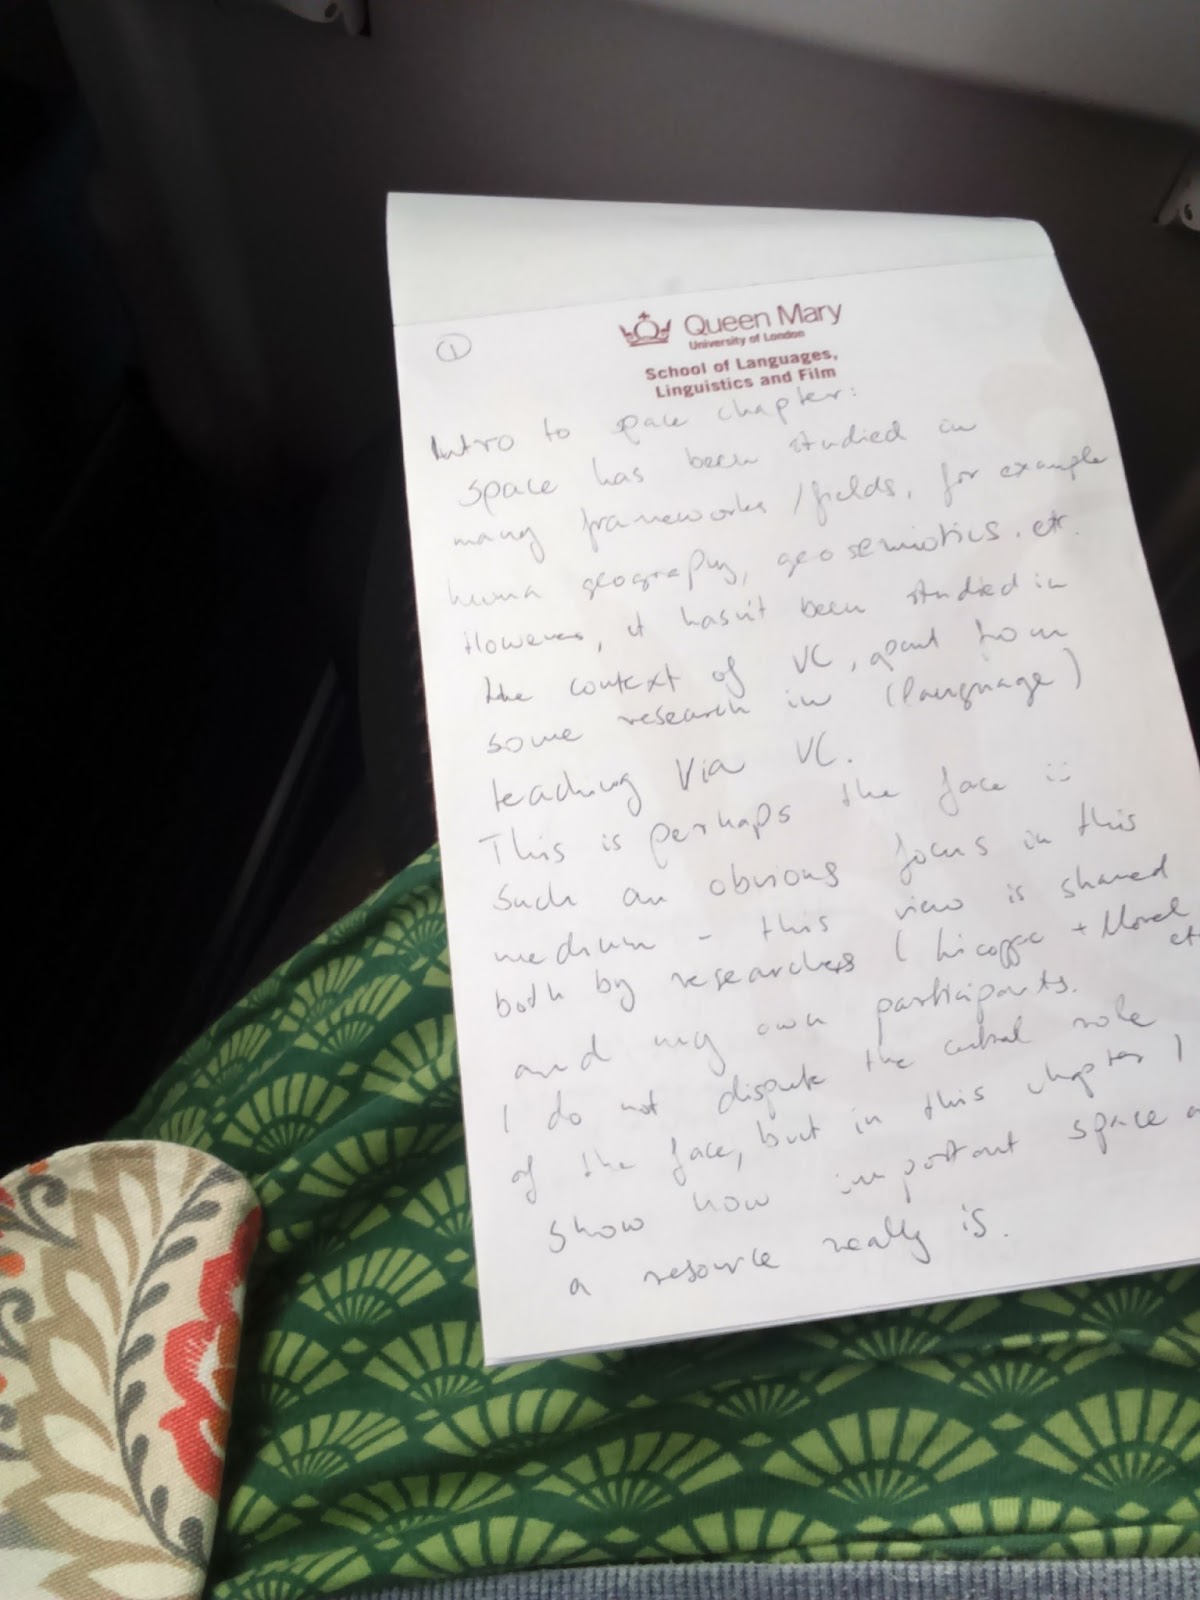 1
Queen Mary
University of London
School of Languages,
Linguistics and Film
Intro to space chapter:
Space has been studied in
many frameworks / fields, for example
human geography, geosemiotics, etc.
However, it hasn't been studied in
the context of VC, apart from
some research in (language)
teaching via VC.
This is perhaps the face is
such an obvious focus in this
medium - this view is shared
both by researchers (Licoppe + Morel
and my own participants.
I do not dispute the central role
of the face, but in this chapter I
show how important space
a resource really is.